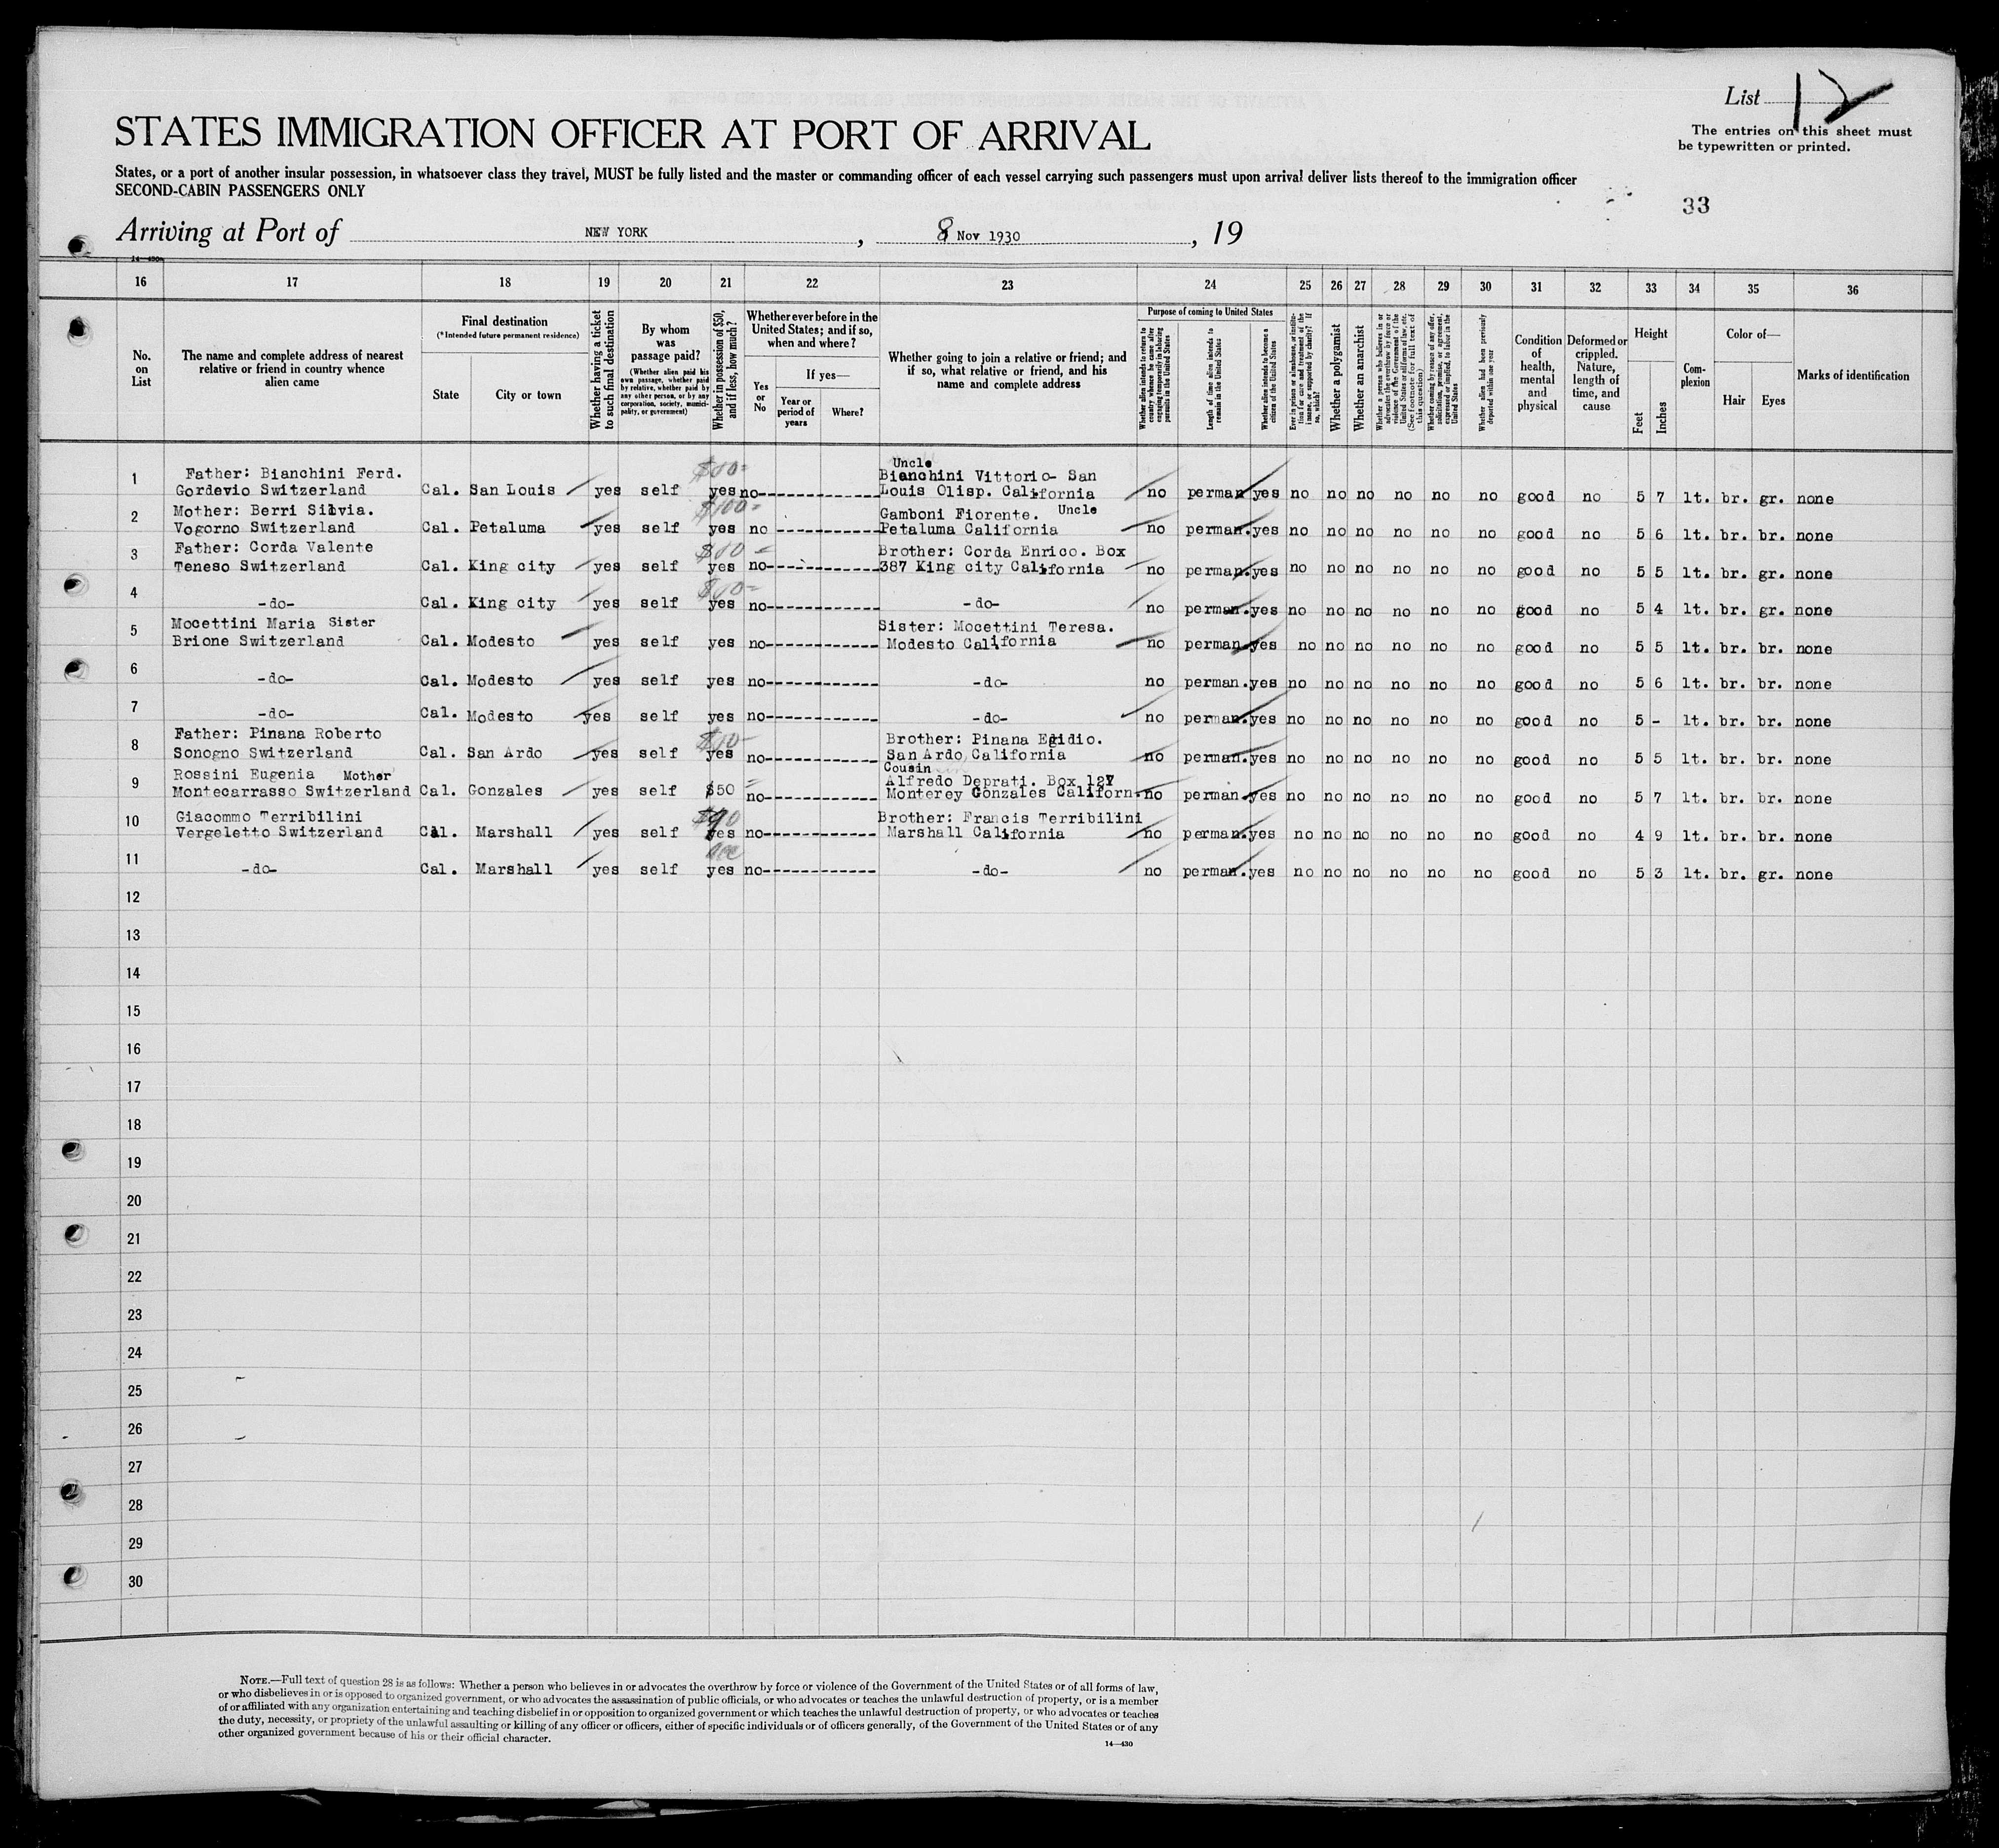 List 12
The entries on this sheet must
be typewritten or printed.
STATES IMMIGRATION OFFICER AT PORT OF ARRIVAL
States, or a port of another insular possession, in whatsoever class they travel, MUST be fully listed and the master or commanding officer of each vessel carrying such passengers must upon arrival deliver lists thereof to the immigration officer
SECOND-CABIN PASSENGERS ONLY
33
Arriving at Port of NEW YORK, 8 Nov 1930, 19
14—430
16 17 18 19 20 21 22 23 24 25 26 27 28 29 30 31 32 33 34 35 36
No. on List
The name and complete address of nearest relative or friend in country whence alien came
Final destination
(*Intended future permanent residence)
State
City or town
Whether having a ticket to such final destination
By whom was passage paid?
(Whether alien paid his own passage, whether paid by relative, whether paid by any other person, or by any corporation, society, municipality, or government)
Whether in possession of $50, and if less, how much?
Whether ever before in the United States; and if so, when and where?
Yes or No
If yes—
Year or period of years
Where?
Whether going to join a relative or friend; and if so, what relative or friend, and his name and complete address
Purpose of coming to United States
Whether alien intends to return to country whence he came after engaging temporarily in laboring pursuits in the United States
Length of time alien intends to remain in the United States
Whether alien intends to become a citizen of the United States
Ever in prison or almshouse, or institution for care and treatment of the insane, or supported by charity? If so, which?
Whether a polygamist
Whether an anarchist
Whether a person who believes in or advocates the overthrow by force or violence of the Government of the United States or all forms of law, etc. (See footnote for full text of this question)
Whether coming by reason of any offer, solicitation, promise, or agreement, expressed or implied, to labor in the United States
Whether alien had been previously deported within one year
Condition of health, mental and physical
Deformed or crippled. Nature, length of time, and cause
Height
Feet
Inches
Complexion
Color of—
Hair
Eyes
Marks of identification
1 Father: Bianchini Ferd. $80= Uncle Bianchini Vittorio- San
Gordevio Switzerland Cal. San Louis yes self yes no------------ Louis Olisp. California no perman yes no no no no no no good no 5 7 lt. br. gr. none
2 Mother: Berri Silvia. $100= Gamboni Fiorente. Uncle
Vogorno Switzerland Cal. Petaluma yes self yes no ------------ Petaluma California no perman. yes no no no no no no good no 5 6 lt. br. br. none
3 Father: Corda Valente $80= Brother: Corda Enrico. Box
Teneso Switzerland Cal. King city yes self yes no------------ 387 King city California no perman. yes no no no no no no good no 5 5 lt. br. gr. none
4 -do- Cal. King city yes self yes no------------ -do- no perman. yes no no no no no no good no 5 4 lt. br. gr. none
5 Mocettini Maria Sister Sister: Mocettini Teresa.
Brione Switzerland Cal. Modesto yes self yes no------------ Modesto California no perman. yes no no no no no no good no 5 5 lt. br. br. none
6 -do- Cal. Modesto yes self yes no------------ -do- no perman. yes no no no no no no good no 5 6 lt. br. br. none
7 -do- Cal. Modesto yes self yes no------------ -do- no perman. yes no no no no no no good no 5 - lt. br. br. none
8 Father: Pinana Roberto Brother: Pinana Egidio.
Sonogno Switzerland Cal. San Ardo yes self yes no------------ San Ardo California no perman. yes no no no no no no good no 5 5 lt. br. br. none
9 Rossini Eugenia Mother Cousin Alfredo Deprati. Box 127
Montecarrasso Switzerland Cal. Gonzales yes self $50 no------------ Monterey Gonzales Californ. no perman. yes no no no no no no good no 5 7 lt. br. br. none
10 Giacommo Terribilini $90 Brother: Francis Terribilini
Vergeletto Switzerland Cal. Marshall yes self yes no------------ Marshall California no perman. yes no no no no no no good no 4 9 lt. br. br. none
11 -do- Cal. Marshall yes self yes no------------ -do- no perman. yes no no no no no no good no 5 3 lt. br. gr. none
12
13
14
15
16
17
18
19
20
21
22
23
24
25
26
27
28
29
30
NOTE.—Full text of question 28 is as follows: Whether a person who believes in or advocates the overthrow by force or violence of the Government of the United States or of all forms of law,
or who disbelieves in or is opposed to organized government, or who advocates the assassination of public officials, or who advocates or teaches the unlawful destruction of property, or is a member
of or affiliated with any organization entertaining and teaching disbelief in or opposition to organized government or which teaches the unlawful destruction of property, or who advocates or teaches
the duty, necessity, or propriety of the unlawful assaulting or killing of any officer or officers, either of specific individuals or of officers generally, of the Government of the United States or of any
other organized government because of his or their official character.
14—430